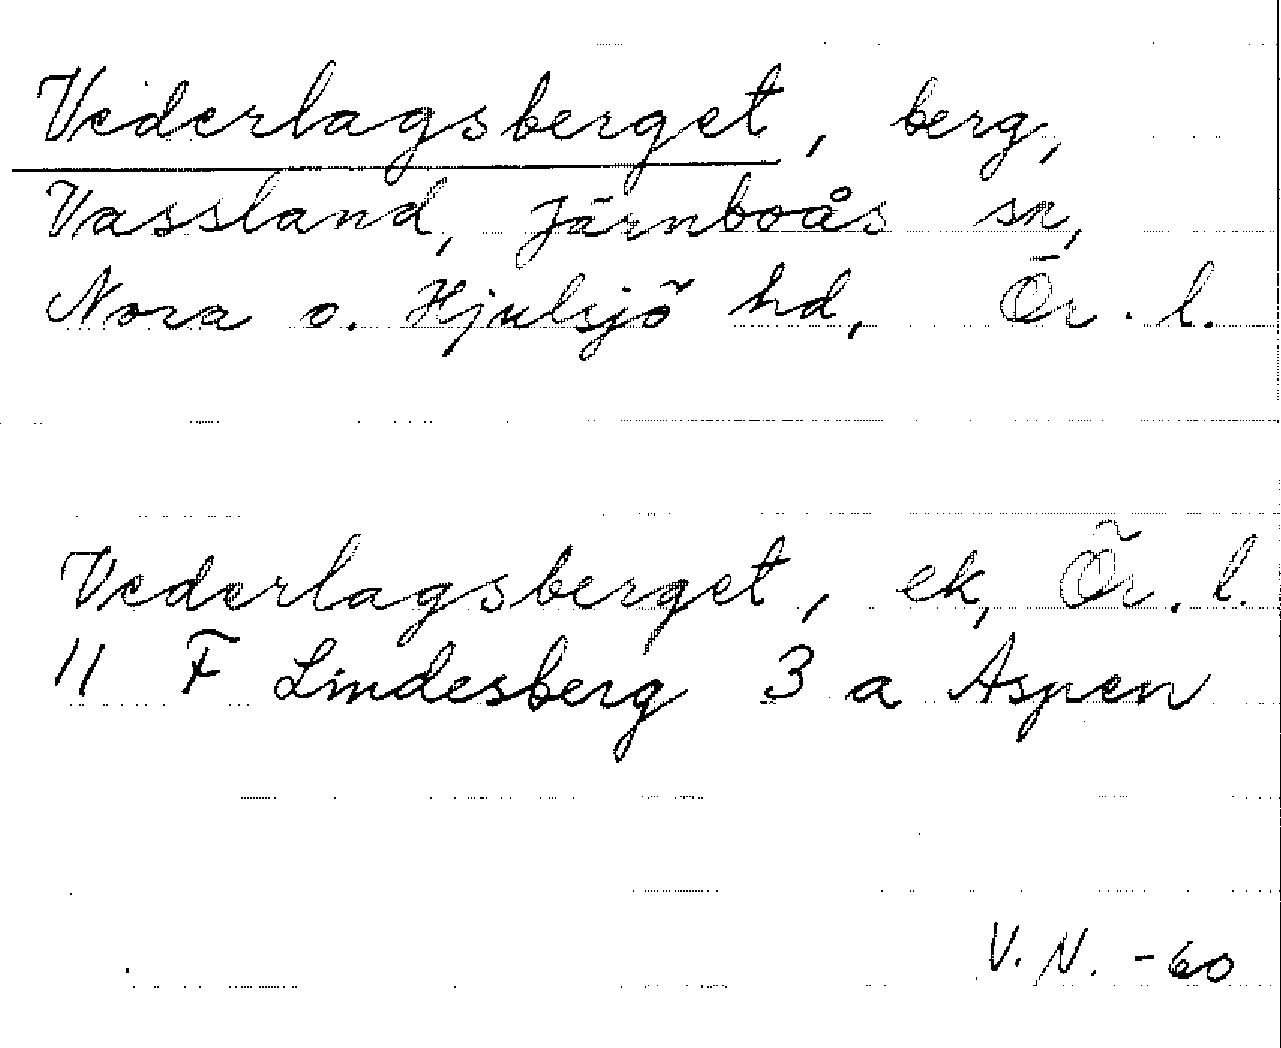 Vederlagsberget, berg,
Vassland, Järnboås sn,
Nora o. Hjulsjö hd, Ör. l.
Vederlagsberget, ek, Ör. l.
11 F Lindesberg 3 a Aspen
V. N. -60